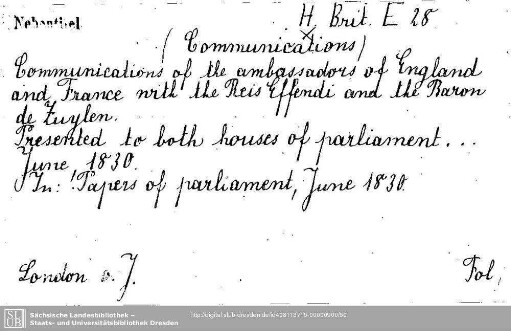 Nebentitel
H. Brit. E 28
(Communications)
Communications of the ambassadors of England
and France with the Reis Effendi and the Baron
de Zuylen.
Presented to both houses of parliament...
June 1830.
In: Papers of parliament, June 1830.
London o. J.
Fol.
Sächsische Landesbibliothek –
Staats- und Universitätsbibliothek Dresden